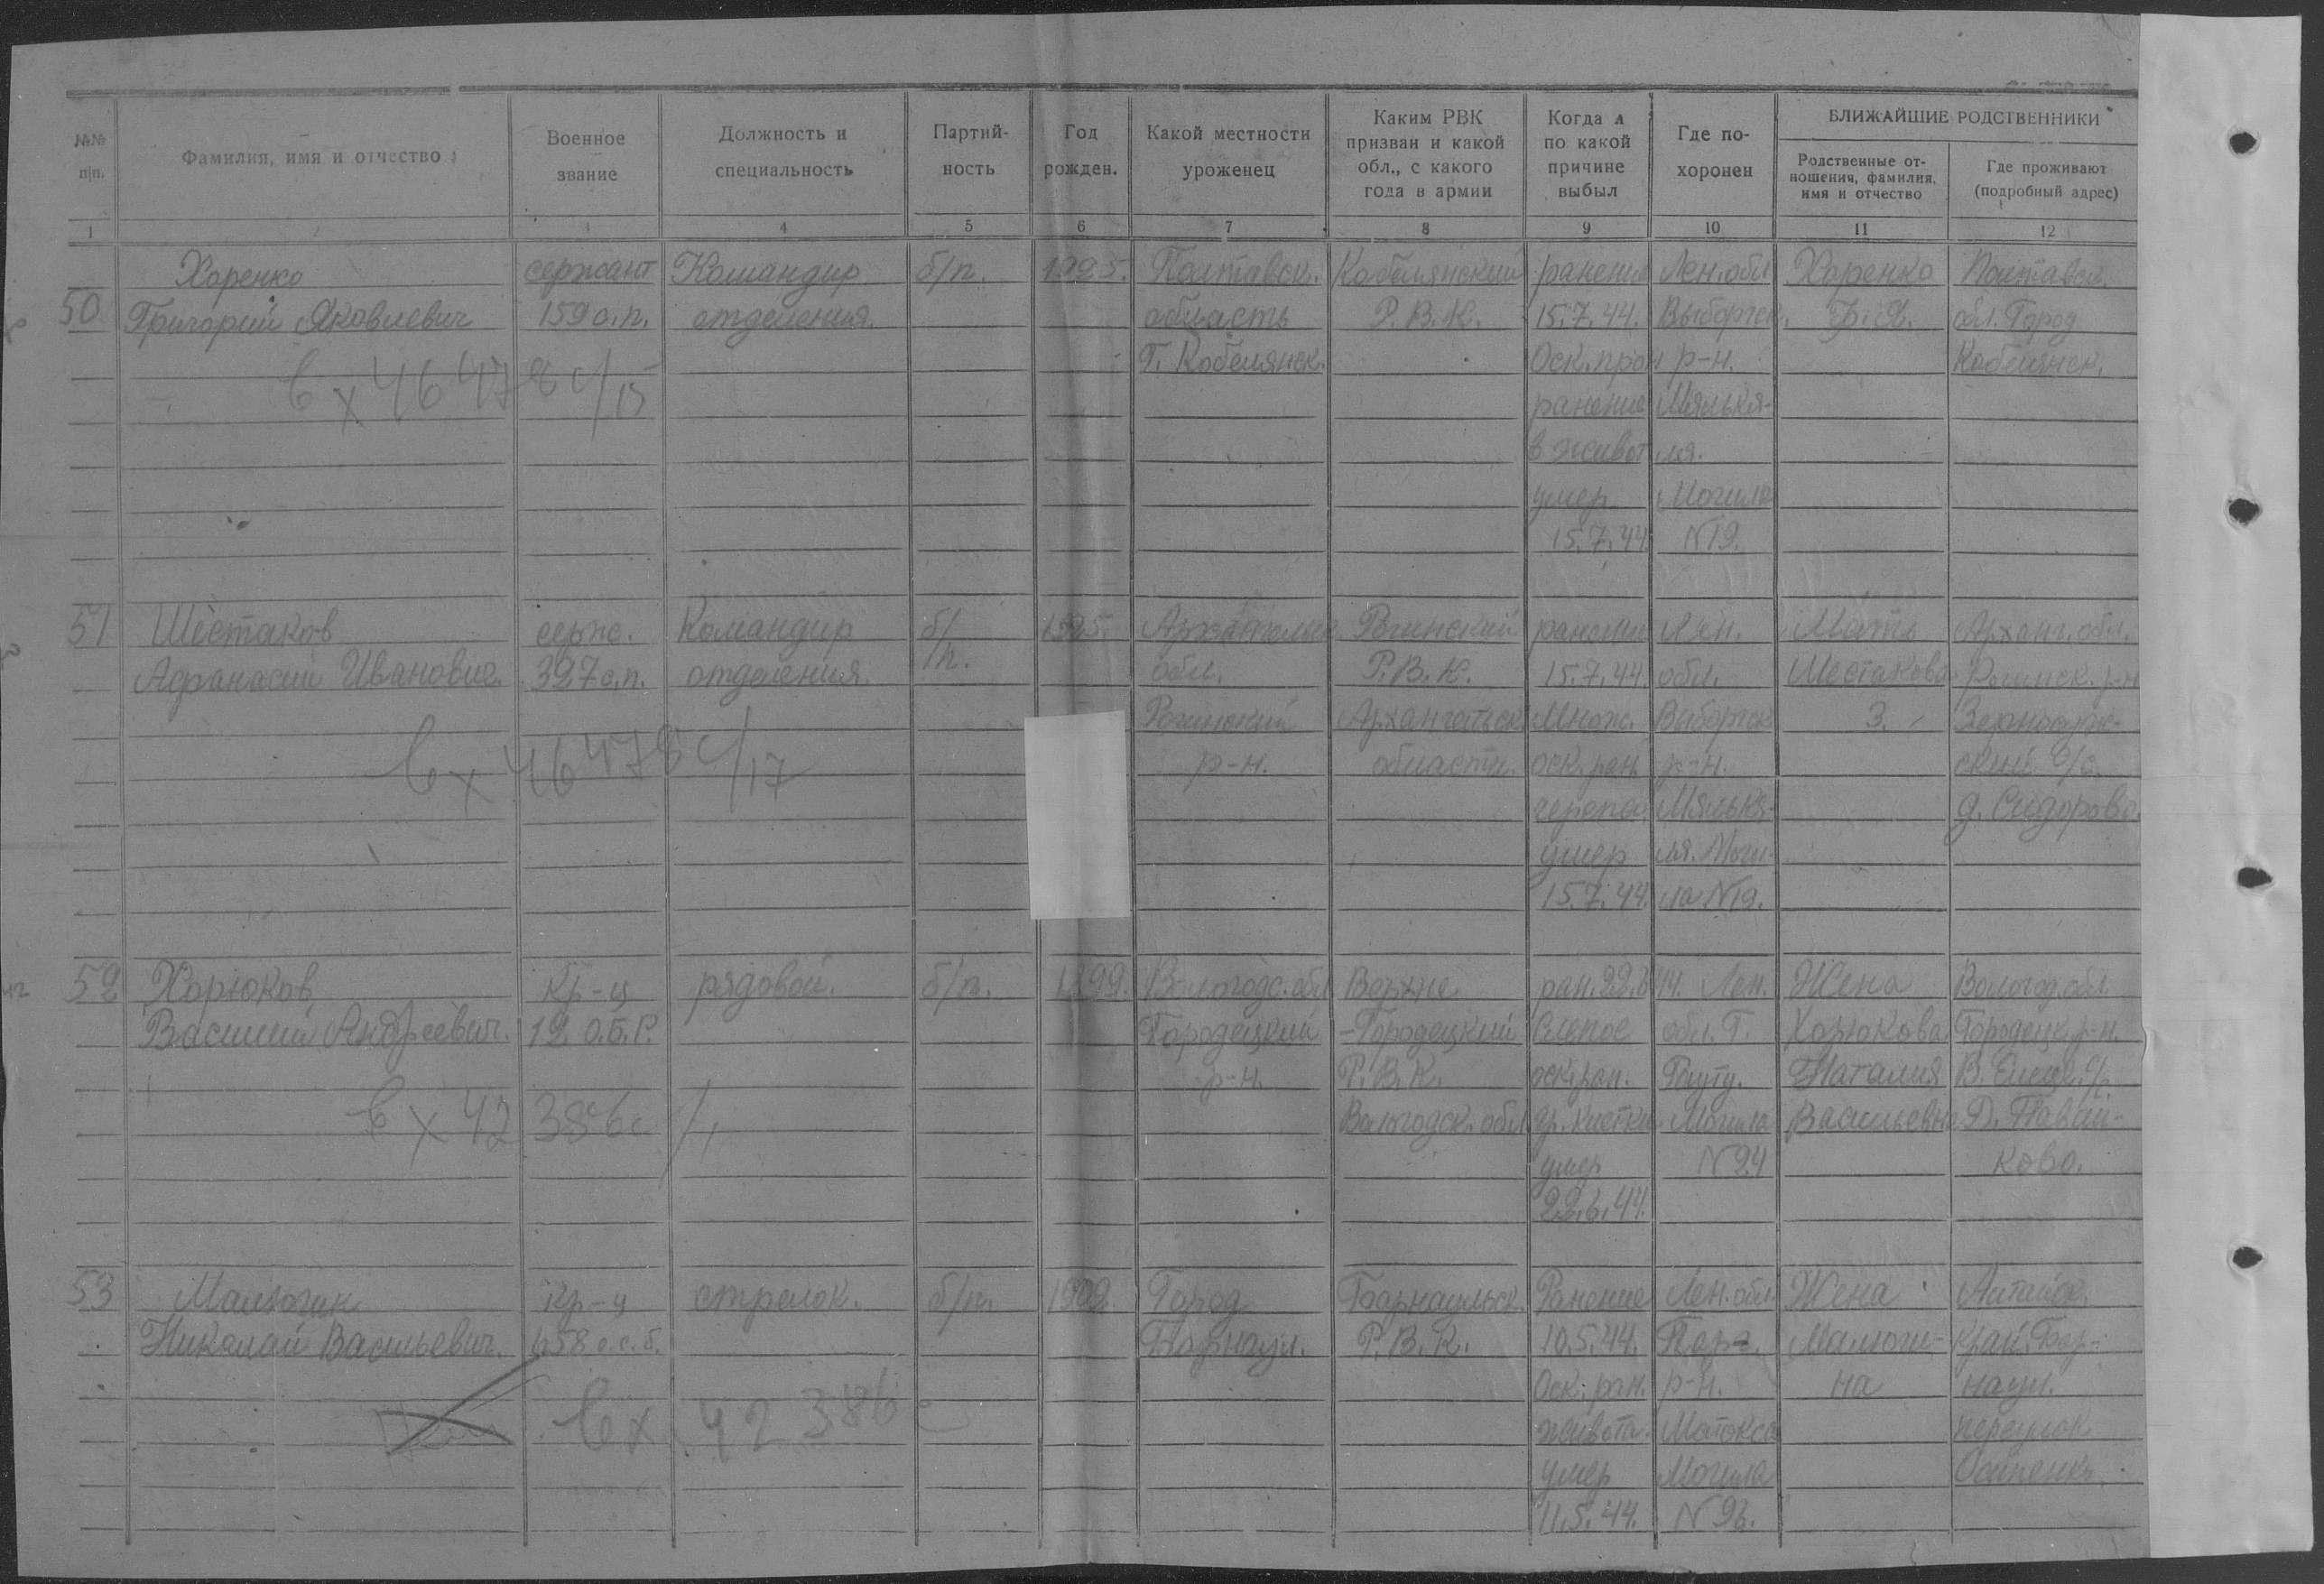 №№ п|п.
Фамилия, имя и отчество
Военное звание
Должность и специальность
Партий-ность
Год рожден.
Какой местности уроженец
Каким РВК призван и какой обл., с какого года в армии
Когда и по какой причине выбыл
Где по-хоронен
БЛИЖАЙШИЕ РОДСТВЕННИКИ
Родственные от-ношения, фамилия, имя и отчество
Где проживают (подробный адрес)
1 4 5 6 7 8 9 10 11 12
50
Хоренко
Григорий Яковлевич
вх 46478с/15
сержант
159 с.п.
Командир
отделения.
б/п.
1925.
Полтавск.
область
Г. Кобелянск.
Кобелянский
Р.В.К.
ранение
15.7.44.
Оск. прон
ранение
в живот
умер
15.7.44
Лен. обл
Выборгск.
р-н.
Мялькя-
ля.
Могила
N19.
Хоренко
Полтавск.
обл. Город
Кобелянск.
51
Шестаков
Афанасий Иванович.
вх 46478с/17
серж.
397 с.п.
Командир
отделения.
б/п.
1925.
обл.
р-н.
Р.В.К.
Архангельск
области.
ранение
15.7.44.
Множ.
оск. ран.
черепа.
умер
15.7.44.
Лен.
обл.
Выборгск
р-н.
Мялькя-
ля. Моги-
ла N19.
Мать
Шестакова
З.
Арханг. обл.
с/с.
д. Сидорово.
52
Хорюков
Василий Андреевич.
вх 42386с/1
Кр-ц
рядовой.
б/п.
1899.
Вологодс. обл
Городецкий
р-н.
Верхне
-Городецкий
Р.В.К.
Вологодск. обл
ран. 22.6
Слепое
оск. ран.
умер
22.6.44.
44. Лен.
обл. Г.
Рауту.
Могила
N24
Жена
Хорюкова
Наталия
Васильевна
Вологод. обл
Городецк. р-н.
ково.
53
Малюгин
Николай Васильевич.
вх 42386с
Кр-ц
658 о.с.б.
стрелок.
б/п.
Город
Барнаул.
Барнаульск.
Р.В.К.
Ранение
10.5.44.
Оск. ран.
живота.
умер
11.5.44.
Лен. обл
р-н.
Матокса
Могила
Жена
Малюги-
на
Алтайск.
край. Бар-
наул.
переулок